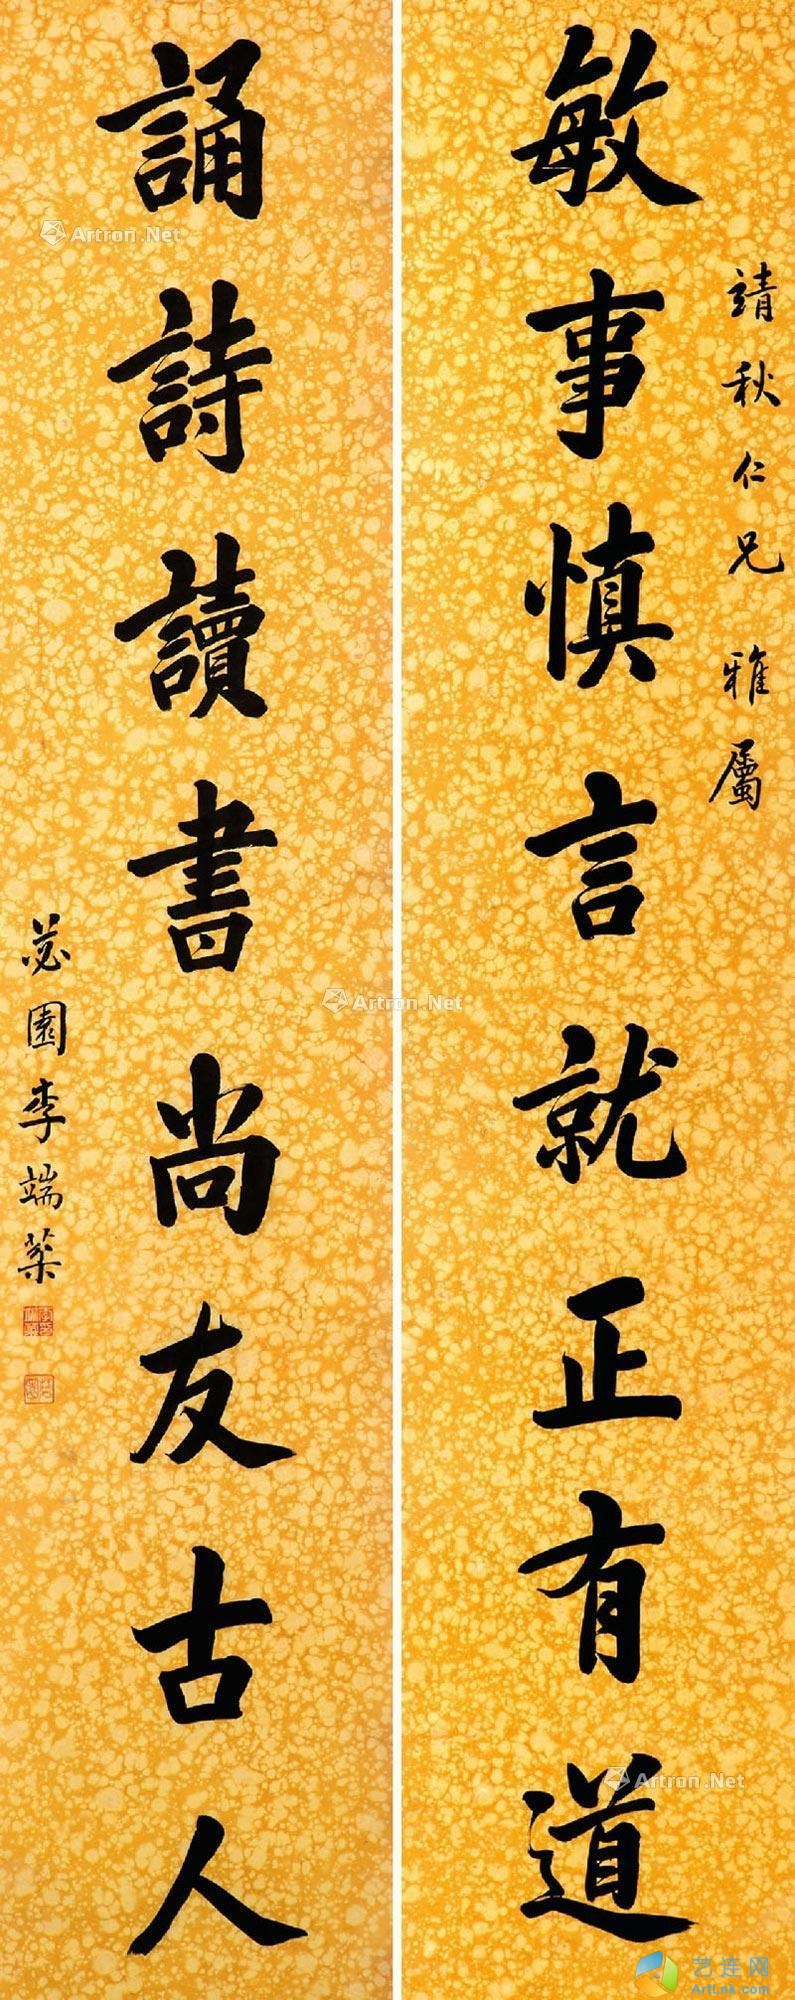 靖秋仁兄雅屬
敏事慎言就正有道
誦詩讀書尚友古人
苾園李端棻
Artron.Net
Artron.Net
Artron.Net
艺连网
ArtLnk.Com